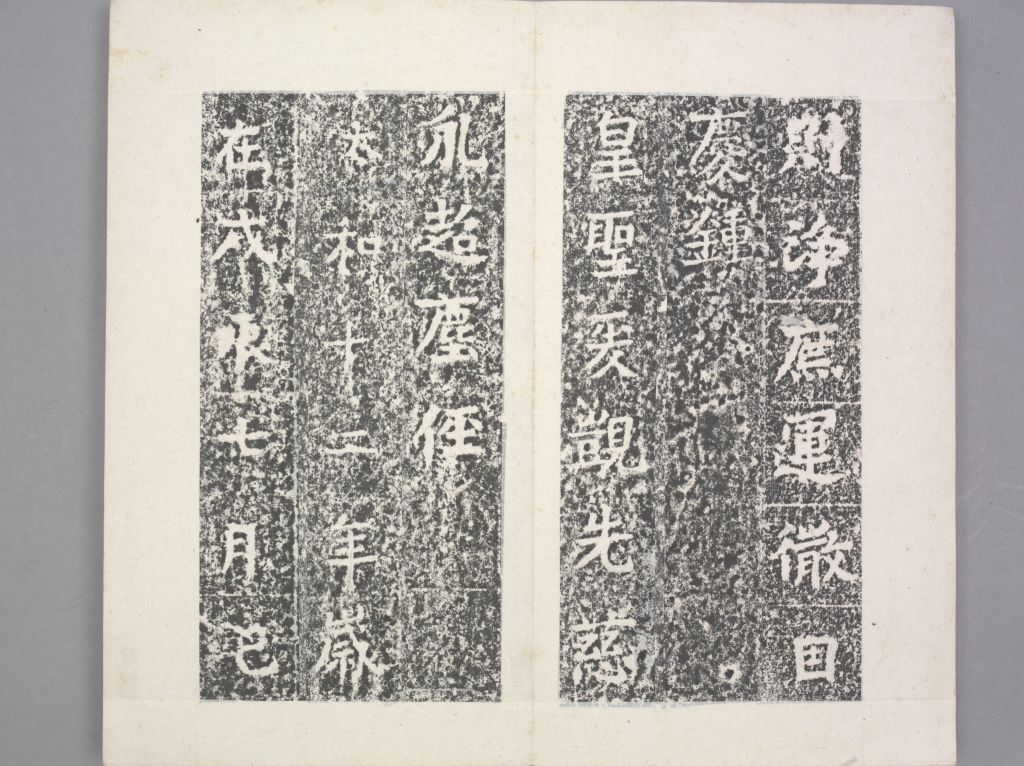 則淨庶運微因
慶鍾
皇聖爰覬先慈
永超塵俓
太和十二年歲
在戊辰七月己